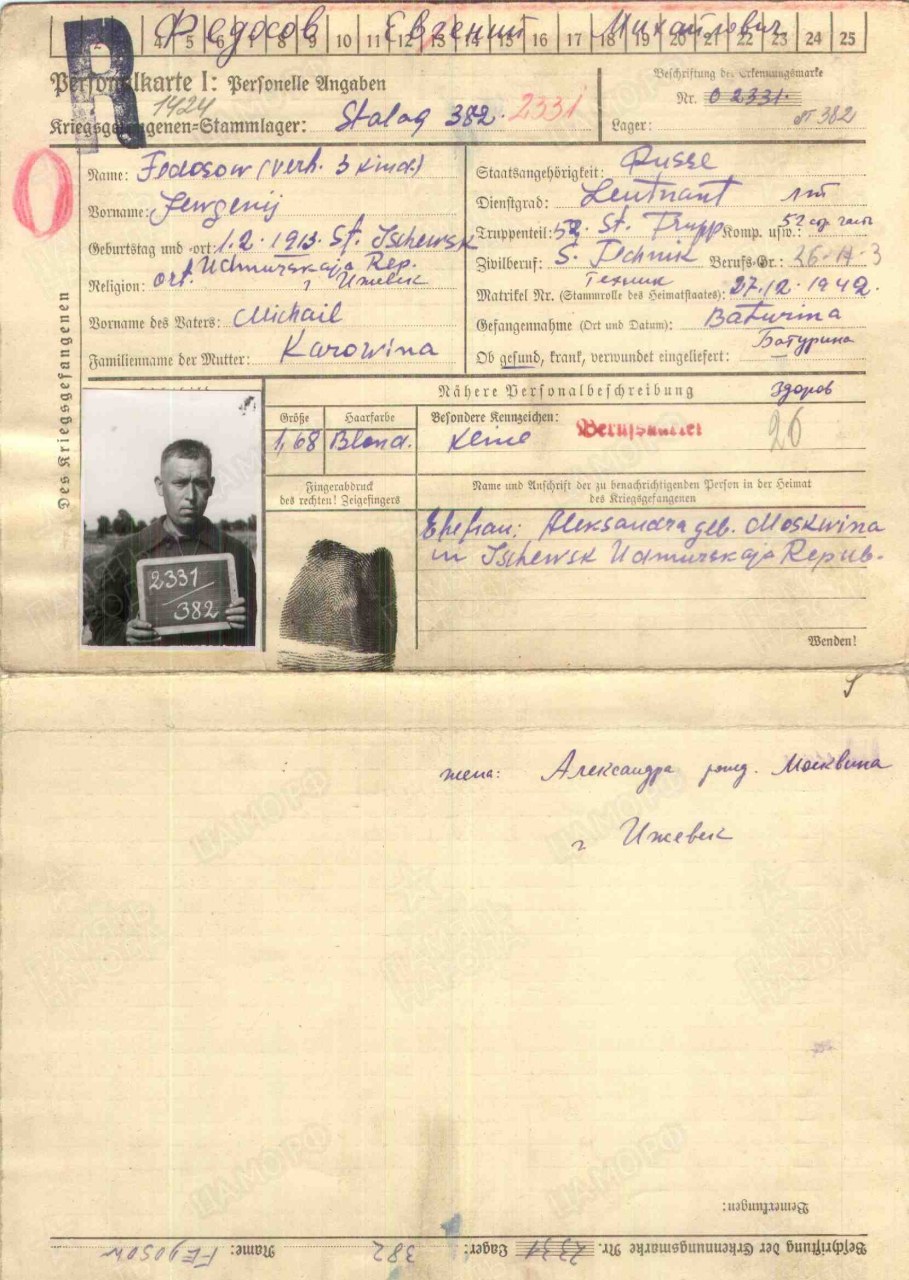 Федосов Евгений Михайлович
4 5 6 7 8 9 10 11 12 13 14 15 16 17 18 19 20 21 22 23 24 25
R
Personalkarte I: Personelle Angaben
1424
Kriegsgefangenen=Stammlager: Stalag 382. 2331
Beschriftung der Erkennungsmarke
Nr. 02331.
Lager: 382
Des Kriegsgefangenen
Name: Fedosow (verh. 3 kind.)
Vorname: Jewgenij
Geburtstag und =ort: 1.2.1913. St. Ischewsk
Udmurskaja Rep.
Religion: ort. г Ижевск
Vorname des Vaters: Michail
Familienname der Mutter: Karowina
Staatsangehörigkeit: Russe
Dienstgrad: Leutnant лт
Truppenteil: 52. St. Trupp Komp. usw.: 52
Zivilberuf: S. Technik Berufs=Gr.: 26
Техник
Matrikel Nr. (Stammrolle des Heimatstaates): 27.12.1942.
Gefangennahme (Ort und Datum): Baturina
Батурина
Ob gesund, krank, verwundet eingeliefert:
Nähere Personalbeschreibung Здоров
Größe Haarfarbe Besondere Kennzeichen:
1,68 Blond. Keine 26
2331
382
Fingerabdruck
des rechten! Zeigefingers
Name und Anschrift der zu benachrichtigenden Person in der Heimat
des Kriegsgefangenen
Ehefrau: Aleksandra geb. Moskwina
in Ischewsk Udmurskaja Repub.
Wenden!
жена: Александра рожд. Москвина
г Ижевск
Bemerkungen:
Beschriftung der Erkennungsmarke Nr. 2331 Lager: 382 Name: Fedosow
ПАМЯТЬ НАРОДА
ЦАМО РФ